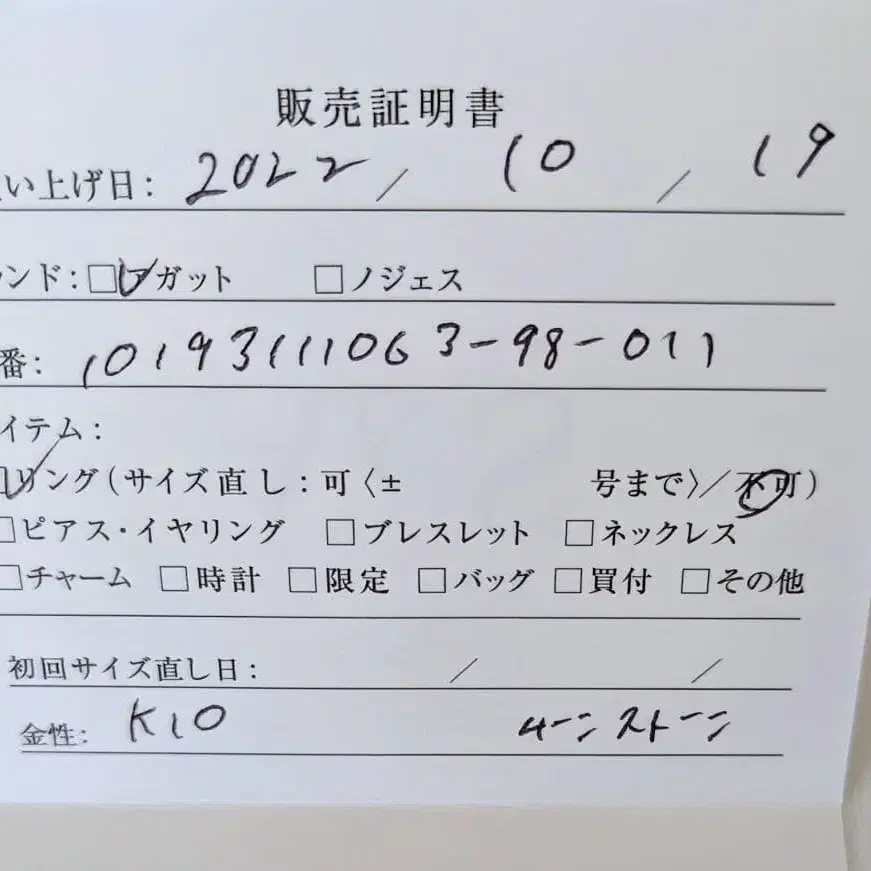 販売証明書
い上げ日: 2022 / 10 / 19
ンド: □アガット □ノジェス
番: 10193111063-98-011
イテム:
□リング(サイズ直し:可〈± 号まで〉/不可)
□ピアス・イヤリング □ブレスレット □ネックレス
□チャーム □時計 □限定 □バッグ □買付 □その他
初回サイズ直し日: / /
金性: K10 ムーンストーン